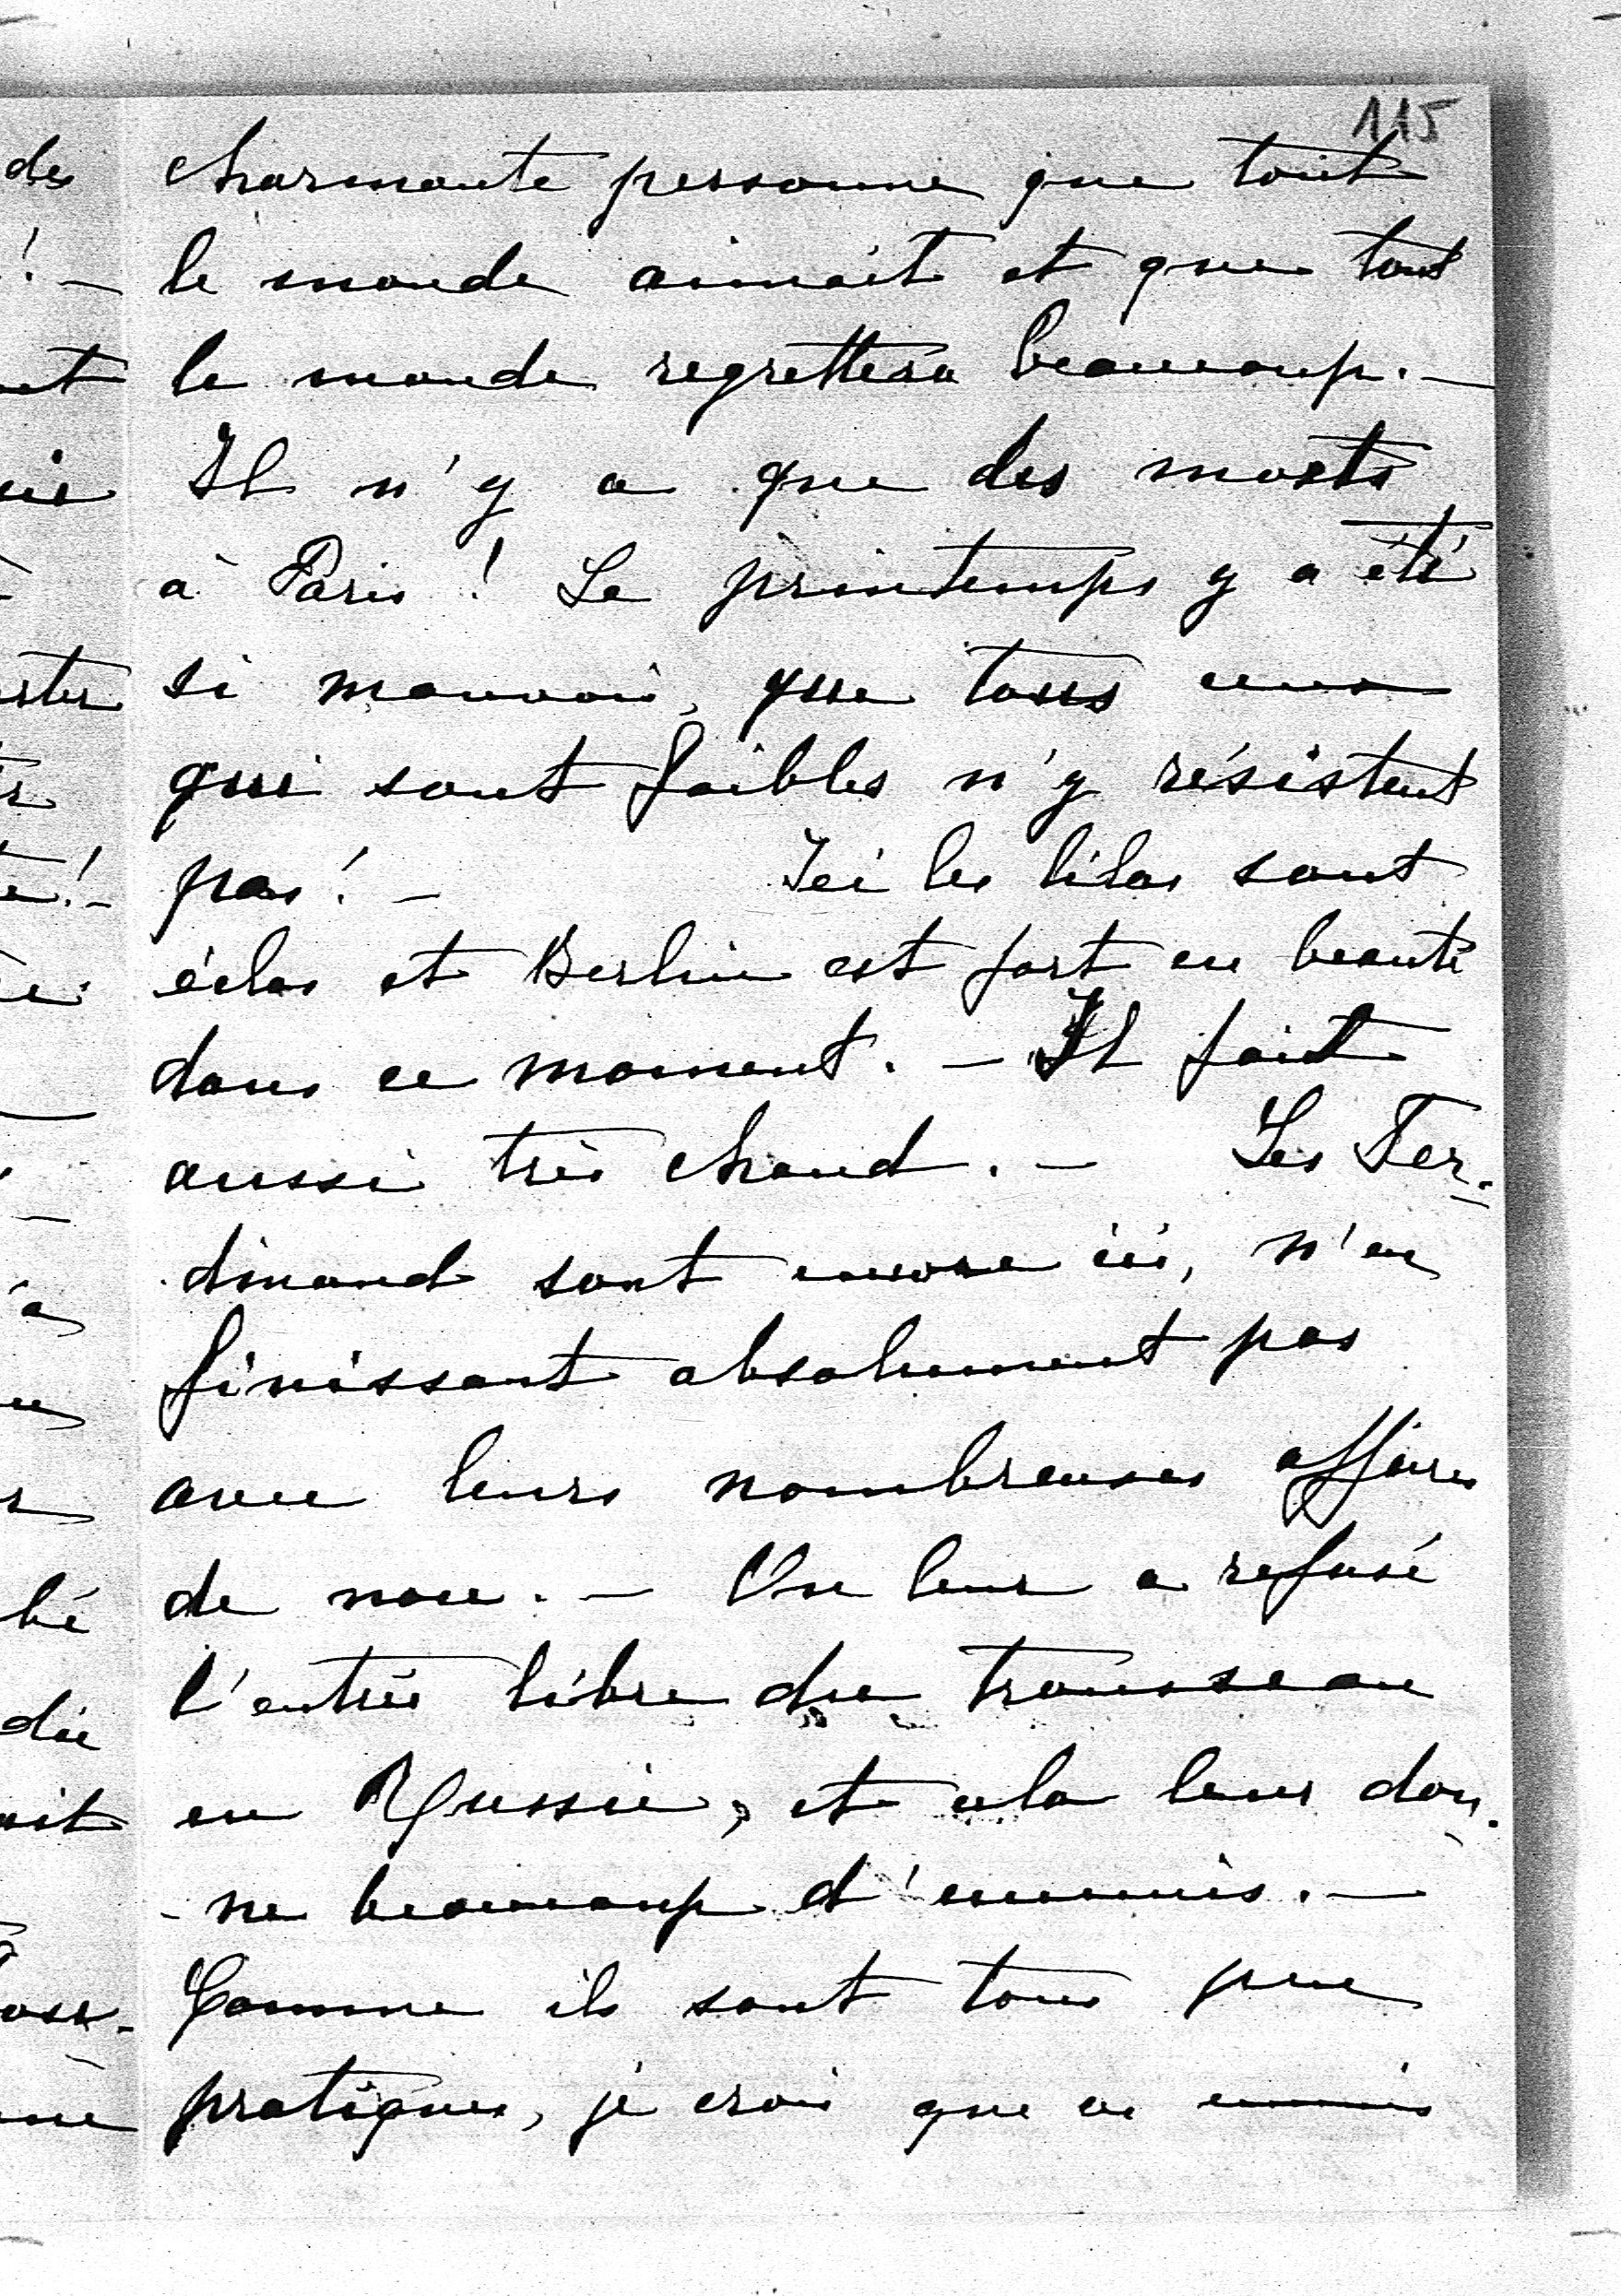 115
charmante personne que tout
le monde aimait et que tout
le monde regrettera beaucoup. —
Il n'y a que des morts
à Paris ! Le printemps y a été
si mauvais, que tous ceux
qui sont faibles n'y résistent
pas ! — Ici les lilas sont
éclos et Berlin est fort en beauté
dans ce moment. — Il fait
aussi très chaud. — Les Fer-
dinand sont encore ici, n'en
finissant absolument pas
avec leurs nombreuses affaires
de noce. — On leur a refusé
l'entrée libre du trousseau
en Russie, et cela leur don-
-ne beaucoup d'ennuis. —
Comme ils sont tous peu
pratiques, je crois que ces ennuis